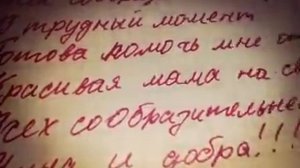 В трудный момент
Готова помочь мне
Красивая мама на
Всех сообразительне
и добра!!!